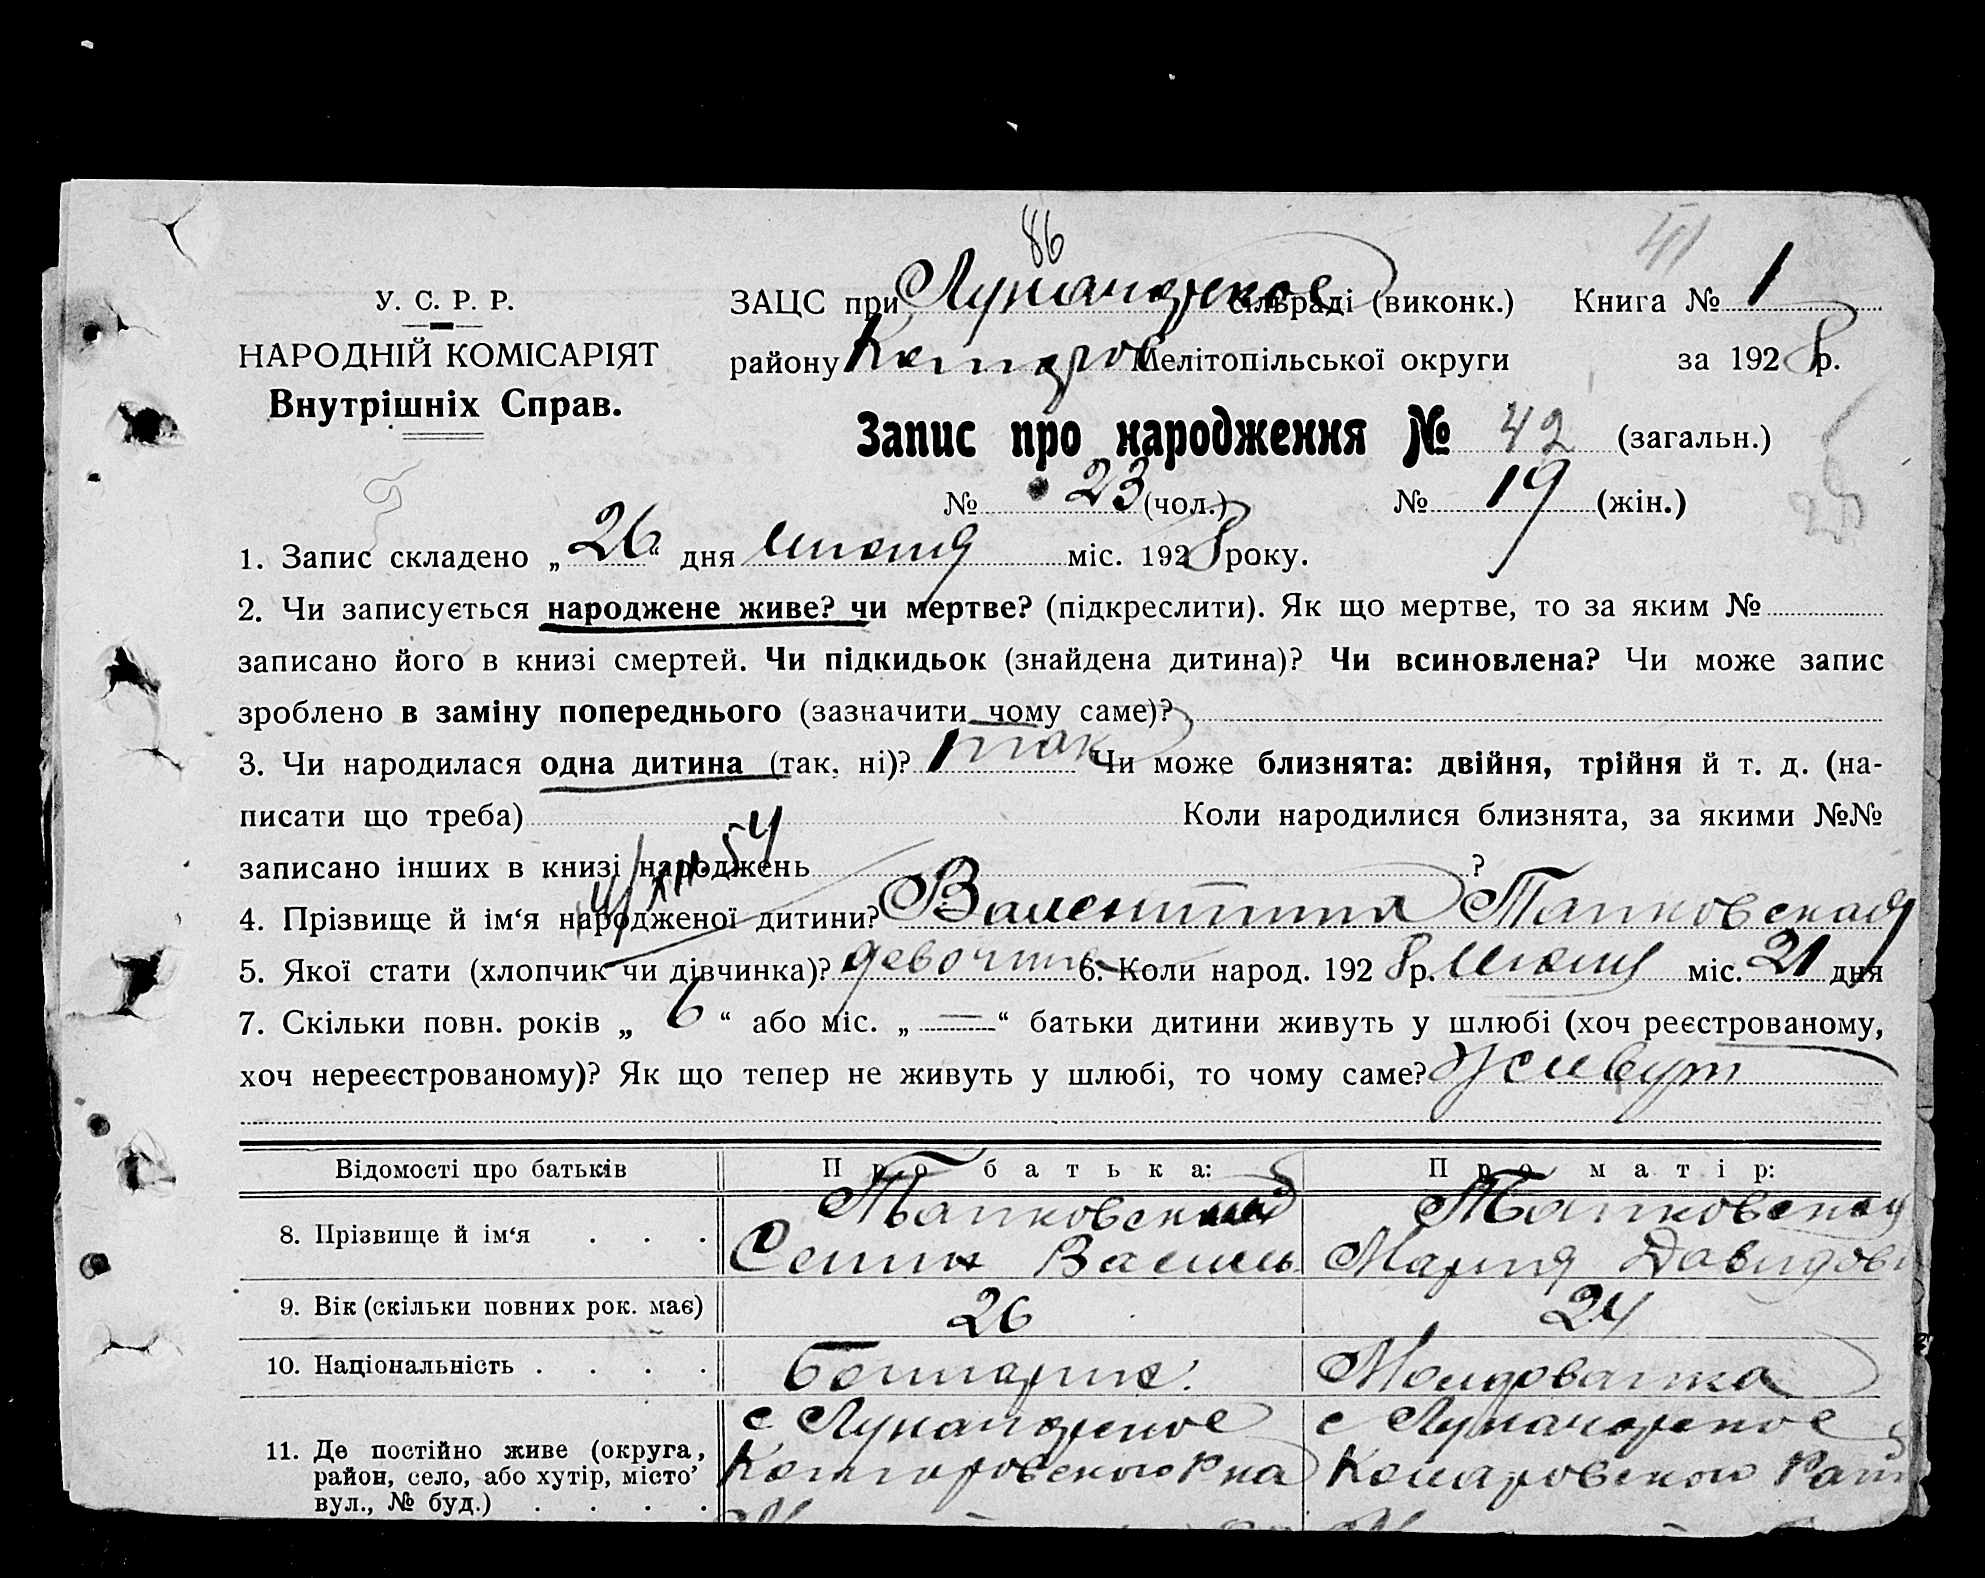 86
41
У. С. Р. Р. ЗАЦС при сільраді (виконк.) Книга № 1
НАРОДНІЙ КОМІСАРІЯТ району Мелітопільської округи за 1928 р.
Внутрішніх Справ.
Запис про народження № 42 (загальн.)
№ 23 (чол.) № 19 (жін.)
1. Запис складено „ 26 “ дня июня міс. 1928 року.
2. Чи записується народжене живе? чи мертве? (підкреслити). Як що мертве, то за яким №
записано його в книзі смертей. Чи підкидьок (знайдена дитина)? Чи всиновлена? Чи може запис
зроблено в заміну попереднього (зазначити чому саме)?
3. Чи народилася одна дитина (так, ні)? 1 так Чи може близнята: двійня, трійня й т. д. (на-
писати що треба) Коли народилися близнята, за якими №№
записано інших в книзі народжень ?
4. Прізвище й ім‘я народженої дитини? Валентина Тапковская
5. Якої стати (хлопчик чи дівчинка)? девочка 6. Коли народ. 1928 р. июня міс. 21 дня
7. Скільки повн. років „ 6 “ або міс. „ — “ батьки дитини живуть у шлюбі (хоч реєстрованому,
хоч нереєстрованому)? Як що тепер не живуть у шлюбі, то чому саме? живут
Відомості про батьків Про батька: Про матір:
8. Прізвище й ім‘я . . . Тапковский Тапковская
Семен Василь Мария Давидов
9. Вік (скільки повних рок. має) 26 24
10. Національність . . . . болгарин. Молдованка
11. Де постійно живе (округа, район, село, або хутір, місто’ вул., № буд.) . . . . с с